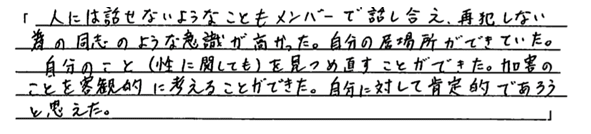 「 人には話せないようなこともメンバーで話し合え、再犯しない
為の同志のような意識が高かった。自分の居場所ができていた。
自分のこと(性に関しても)を見つめ直すことができた。加害の
ことを客観的に考えることができた。自分に対して肯定的であろう
と思えた。 」